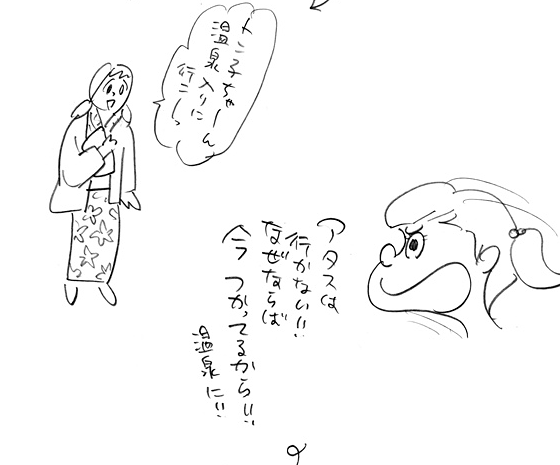 トン子ちゃーん
温泉入りに
行こー
アタスは
行かない!!
なぜならば
今つかってるから!!
温泉に!!